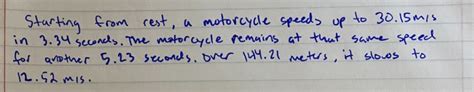 Starting from rest, a motorcycle speeds up to 30.15m/s
in 3.34 seconds. The motorcycle remains at that same speed
for another 5.23 seconds. Over 144.21 meters, it slows to
12.52 m/s.